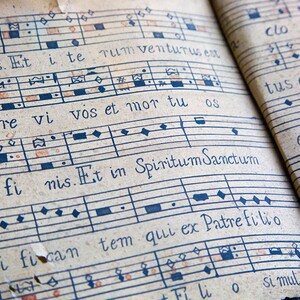 Et i te rum venturus est
re vi vos et mor tu os
fi nis. Et in Spiritum Sanctum
fi can tem qui ex Patre fili o
Fi li o simul
cto
tus